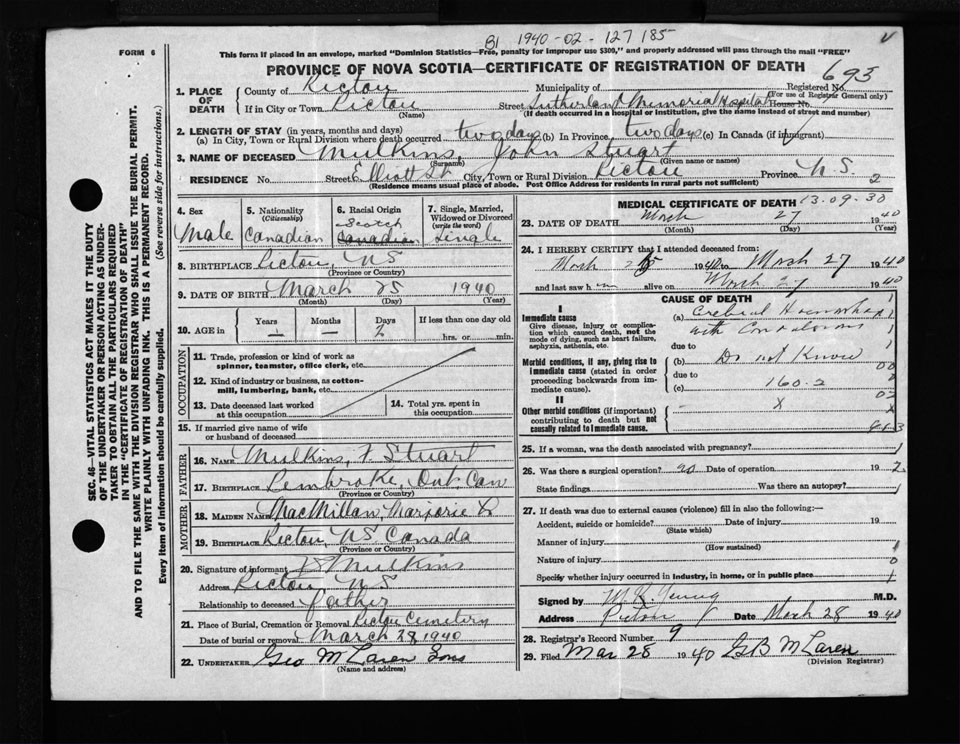 B1 1940-02-127185
FORM 6
This form if placed in an envelope, marked "Dominion Statistics—Free, penalty for improper use $300," and properly addressed will pass through the mail "FREE"
PROVINCE OF NOVA SCOTIA—CERTIFICATE OF REGISTRATION OF DEATH
693
1. PLACE OF DEATH
County of Pictou Municipality of Registered No.
(For use of Registrar General only)
If in City or Town Pictou Street Sutherland Memorial Hospital House No.
(Name) (If death occurred in a hospital or institution, give the name instead of street and number)
2. LENGTH OF STAY (in years, months and days)
(a) In City, Town or Rural Division where death occurred two days (b) In Province two days (c) In Canada (if immigrant)
3. NAME OF DECEASED Mulkins, John Stuart
(Surname) (Given name or names)
RESIDENCE No. Street Elliott St City, Town or Rural Division Pictou Province N S 2
(Residence means usual place of abode. Post Office Address for residents in rural parts not sufficient)
4. Sex Male
5. Nationality (Citizenship) Canadian
6. Racial Origin Scotch Canadian
7. Single, Married, Widowed or Divorced (write the word) Single
8. BIRTHPLACE Pictou, NS
(Province or Country)
9. DATE OF BIRTH March 25 1940
(Month) (Day) (Year)
10. AGE in Years Months Days If less than one day old
- - 2 hrs. or min.
OCCUPATION
11. Trade, profession or kind of work as spinner, teamster, office clerk, etc.
12. Kind of industry or business, as cotton-mill, lumbering, bank, etc.
13. Date deceased last worked at this occupation
14. Total yrs. spent in this occupation
15. If married give name of wife or husband of deceased
FATHER
16. NAME Mulkins, F. Stuart
17. BIRTHPLACE Pembroke, Ont, Can
(Province or Country)
MOTHER
18. MAIDEN NAME MacMillan, Marjorie
19. BIRTHPLACE Pictou, NS Canada
(Province or Country)
20. Signature of informant Mulkins
Address Pictou NS
Relationship to deceased Father
21. Place of Burial, Cremation or Removal Pictou Cemetery
Date of burial or removal March 28, 1940
22. UNDERTAKER Geo McLaren Sons
(Name and address)
MEDICAL CERTIFICATE OF DEATH 13-09-30
23. DATE OF DEATH March 27 1940
(Month) (Day) (Year)
24. I HEREBY CERTIFY that I attended deceased from:
March 25 1940 to March 27 1940
and last saw him alive on March 27 1940
CAUSE OF DEATH
I
Immediate cause
Give disease, injury or complication which caused death, not the mode of dying, such as heart failure, asphyxia, asthenia, etc.
(a) Cerebral Hemorrhage
with Convulsions
due to
Morbid conditions, if any, giving rise to immediate cause (stated in order proceeding backwards from immediate cause).
(b) Do not Know
due to
(c) 160-2
II
Other morbid conditions (if important) contributing to death but not causally related to immediate cause.
- X
25. If a woman, was the death associated with pregnancy?
26. Was there a surgical operation? no Date of operation 19
State findings Was there an autopsy?
27. If death was due to external causes (violence) fill in also the following:—
Accident, suicide or homicide? Date of injury 19
(State which)
Manner of injury
(How sustained)
Nature of injury
Specify whether injury occurred in industry, in home, or in public place
Signed by Young M.D.
Address Pictou Date March 28 1940
28. Registrar's Record Number 9
29. Filed Mar 28 1940 GB McLaren
(Division Registrar)
SEC. 46—VITAL STATISTICS ACT MAKES IT THE DUTY
OF THE UNDERTAKER OR PERSON ACTING AS UNDER-
TAKER TO OBTAIN ALL THE PARTICULARS REQUIRED
IN THE "CERTIFICATE OF REGISTRATION OF DEATH"
AND TO FILE THE SAME WITH THE DIVISION REGISTRAR WHO SHALL ISSUE THE BURIAL PERMIT.
WRITE PLAINLY WITH UNFADING INK. THIS IS A PERMANENT RECORD.
Every item of Information should be carefully supplied. (See reverse side for instructions.)